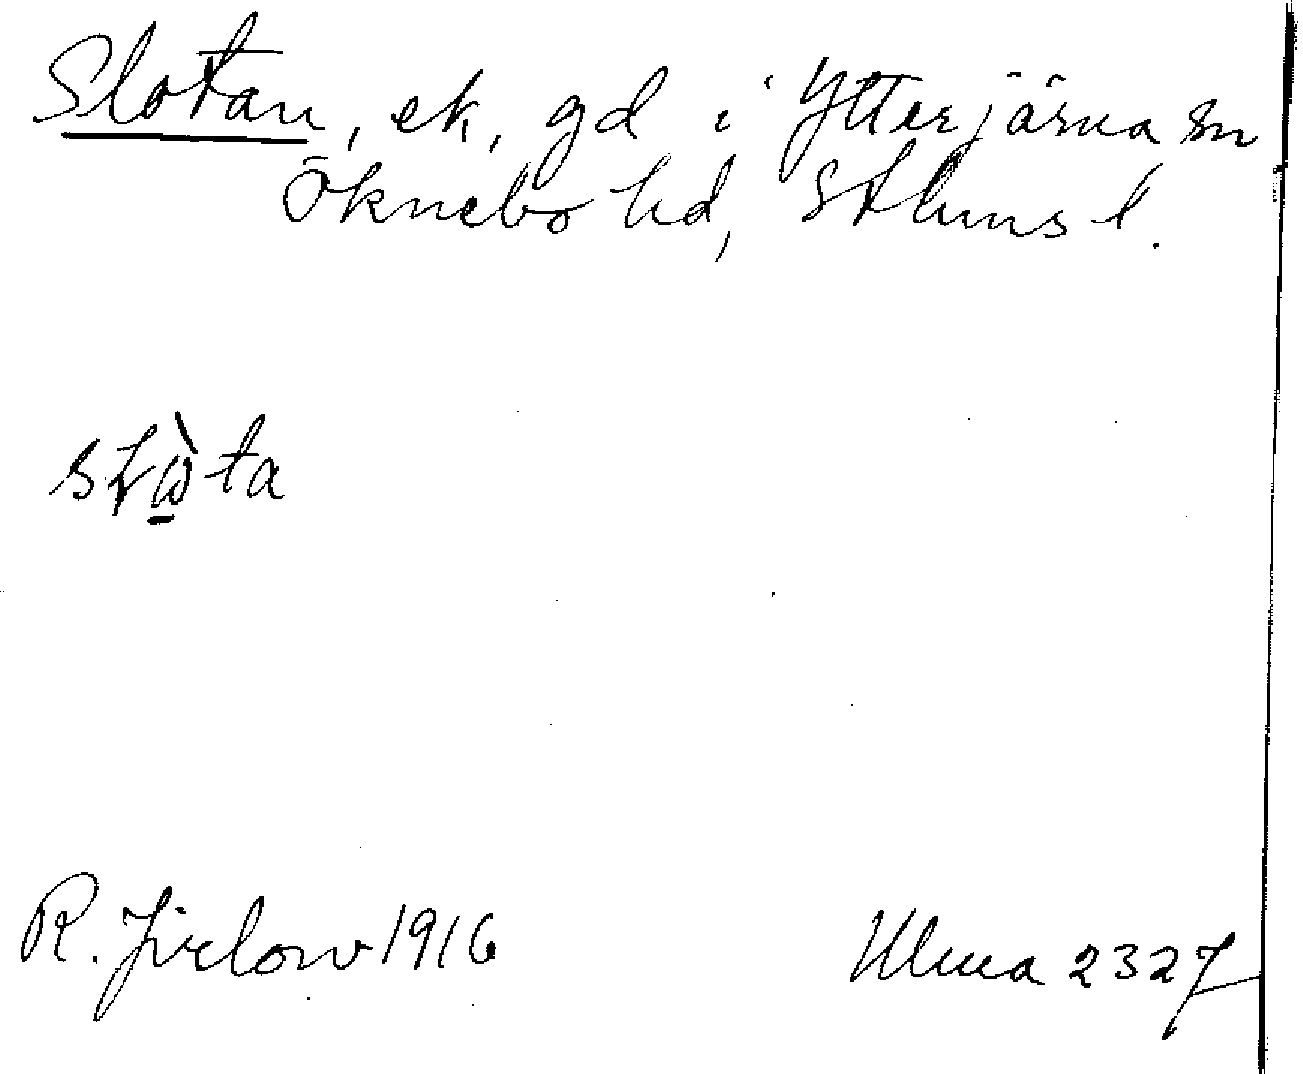 Slotan, ek, gd i Ytterjärna sn
Öknebo hd, Sthlms l.
R. Jirlow 1916
Ulma 2327